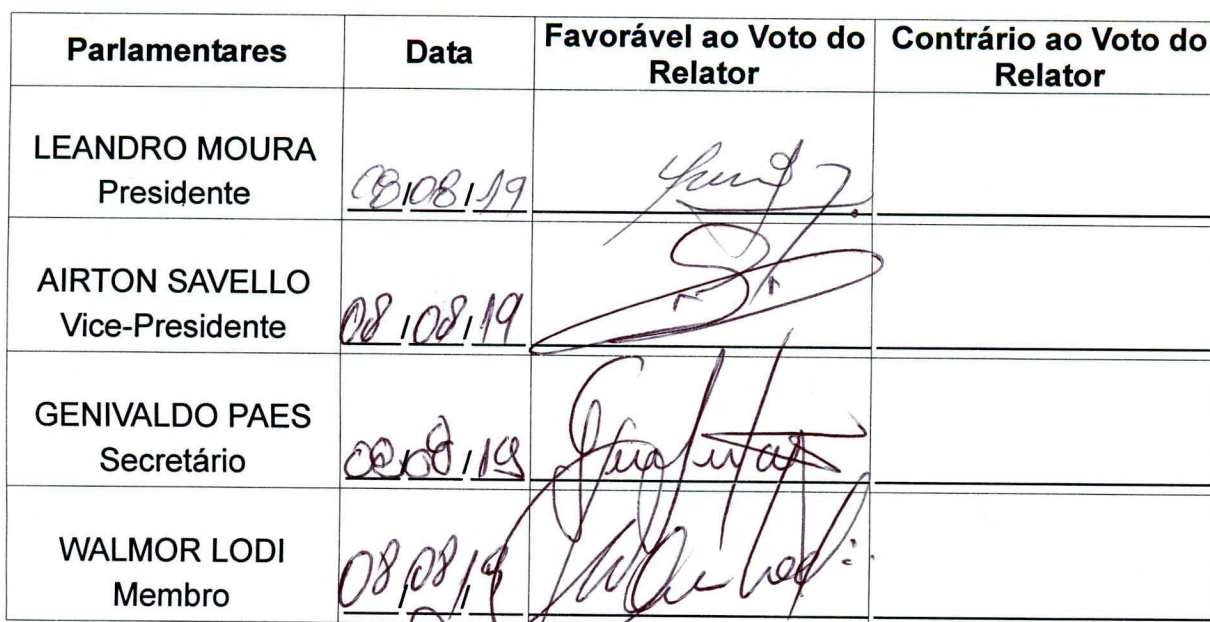 Parlamentares Data Favorável ao Voto do Relator Contrário ao Voto do Relator
LEANDRO MOURA
Presidente 08/08/19
AIRTON SAVELLO
Vice-Presidente 08/08/19
GENIVALDO PAES
Secretário 08/08/19
WALMOR LODI
Membro 08/08/19